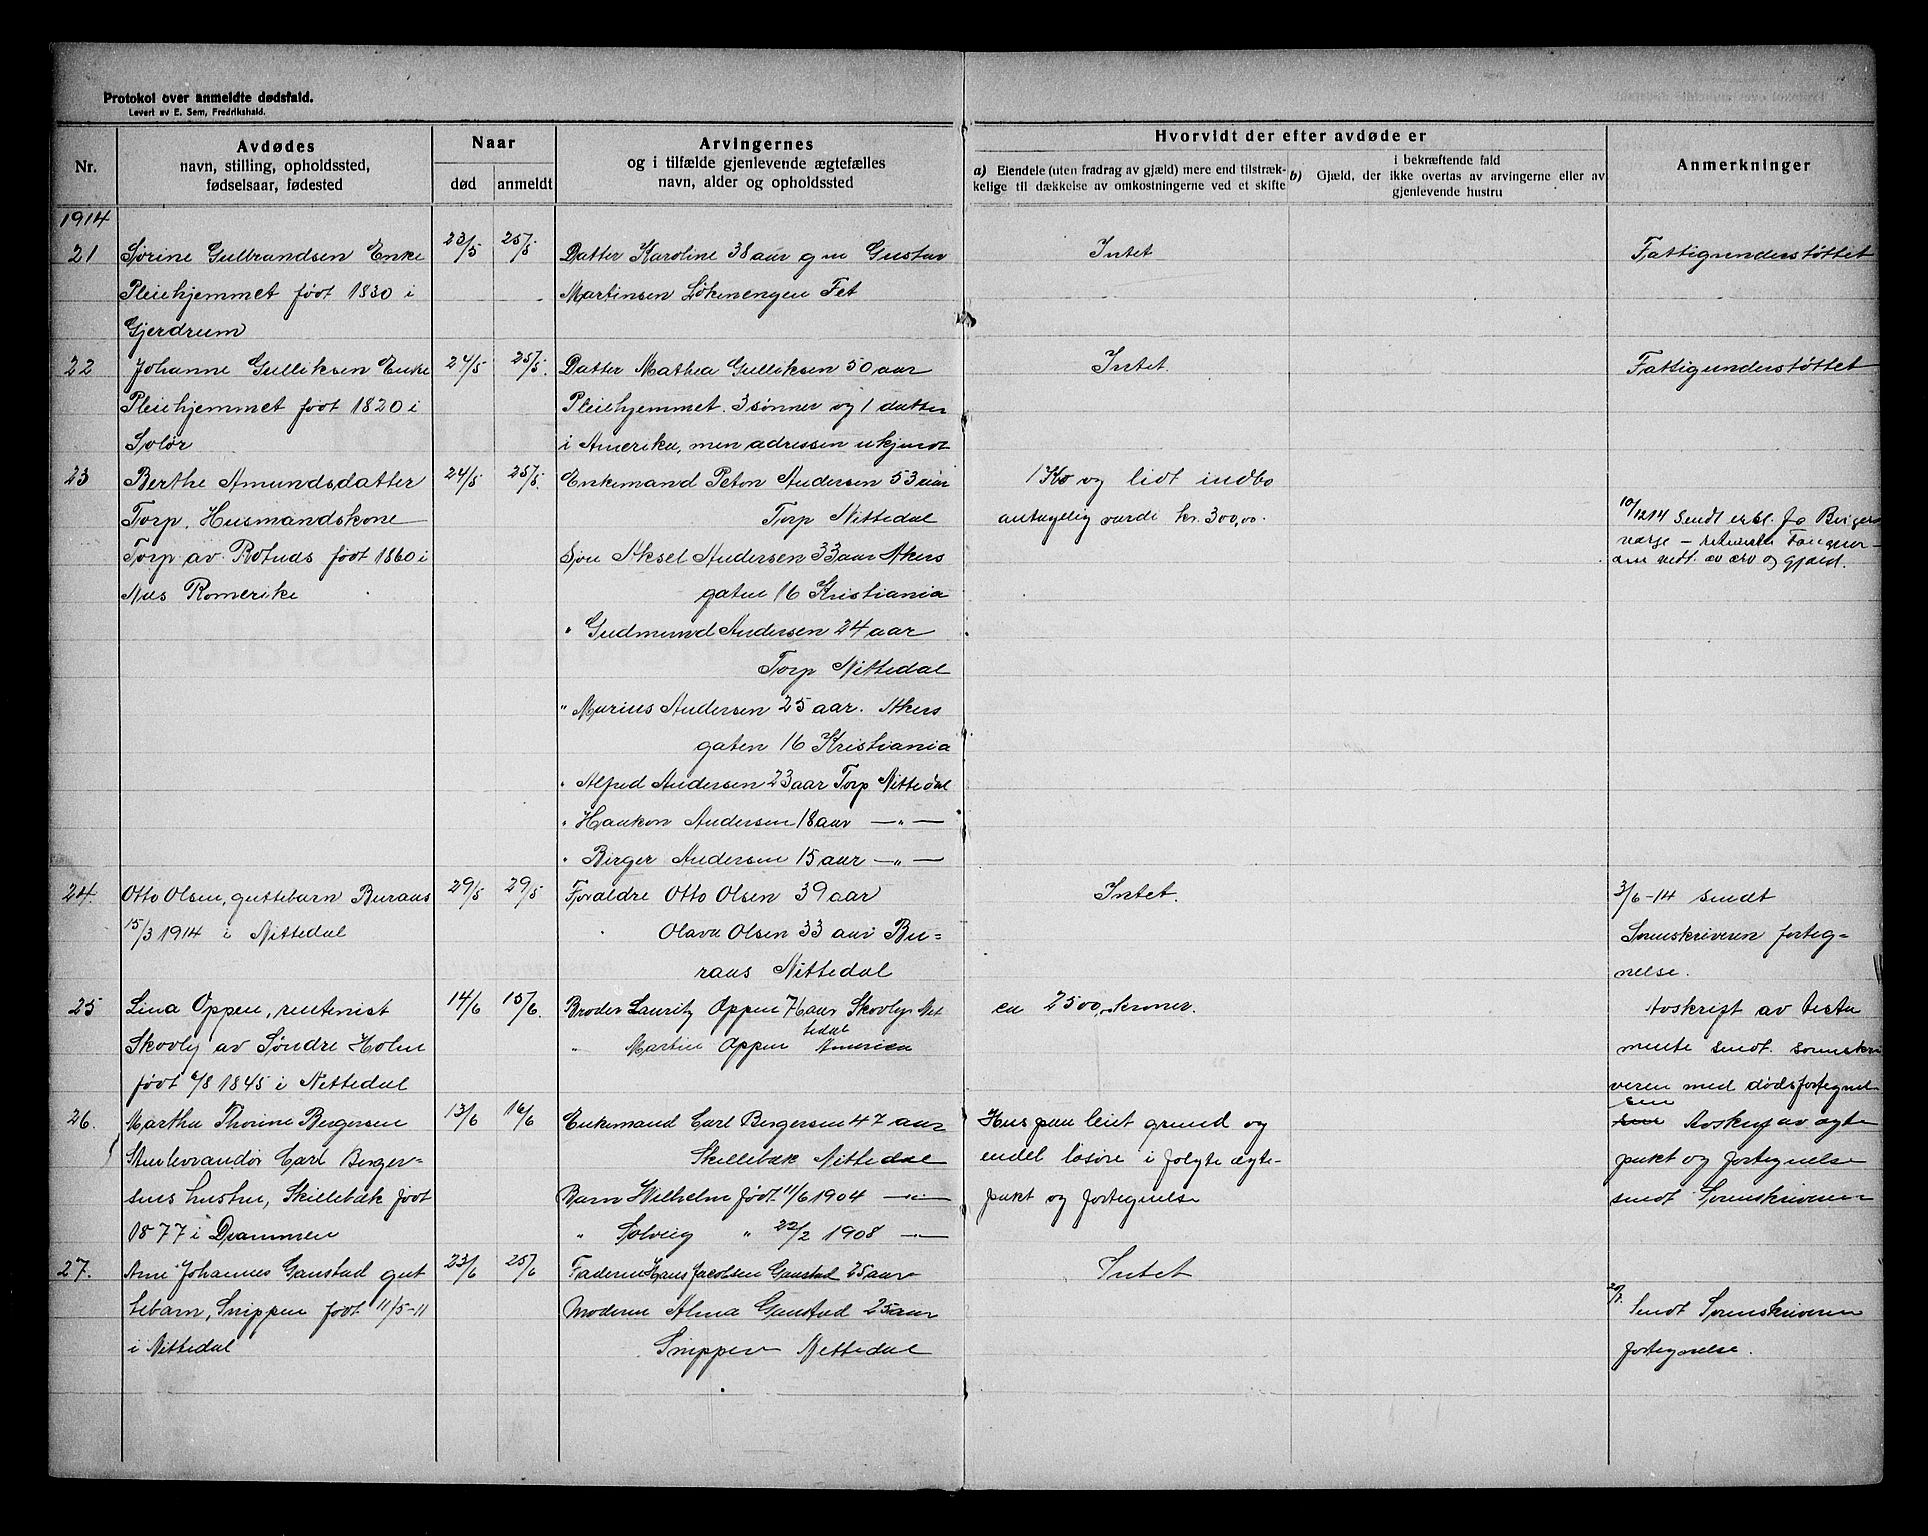 Protokol over anmeldte dødsfald.
Levert av E. Sem, Fredrikshald.
Nr.
Avdødes
navn, stilling, opholdssted,
fødselsaar, fødested
Naar
død
anmeldt
Arvingernes
og i tilfælde gjenlevende ægtefælles
navn, alder og opholdssted
Hvorvidt der efter avdøde er
a) Eiendele (uten fradrag av gjæld) mere end tilstræk-
kelige til dækkelse av omkostningerne ved et skifte
i bekræftende fald
b) Gjæld, der ikke overtas av arvingerne eller av
gjenlevende hustru
Anmerkninger
1914
21 Sørine Gulbrandsen Enke 23/5 25/5 Datter Karoline 38 aar g m Gustav Intet Fattigunderstøttet
Pleiehjemmet født 1830 i Martinsen Løkenengen Fet
Gjerdrum
22 Johanne Gulliksen Enke 24/5 25/5. Datter Mathea Gulliksen 50 aar Intet. Fattigunderstøttet
Pleiehjemmet født 1820 i Pleiehjemmet. 3 sønner og 1 datter
Solør i Amerika, men adressen ukjendt
23 Berthe Amundsdatter 24/5 25/5. Enkemand Peton Andersen 53 aar 1 Ko og lidt indbo
Torp. Husmandskone Torp Nittedal antagelig værdi kr. 300,00. 10/12 14 Sendt
Torp av Rotnes født 1860 i Søn Aksel Andersen 33 aar Akers værge —
Nes Romerike gaten 16 Kristiania av arv og gjæld.
" Gudmund Andersen 24 aar
Torp Nittedal
" Marius Andersen 25 aar. Akers
gaten 16 Kristiania
" Alfred Andersen 23 aar Torp Nittedal
" Haakon Andersen 18 aar — " —
" Birger Andersen 15 aar — " —
24. Otto Olsen, guttebarn Buraas 29/5 29/5 Forældre Otto Olsen 39 aar Intet. 3/6 -14 sendt
15/3 1914 i Nittedal Olava Olsen 33 aar Bu= Sorenskriveren forteg=
raas Nittedal nelse.
25 Lina Oppen, rentenist 14/6 15/6. Broder Lauritz Oppen aar Skovly Nit ca 2500,- kroner. Avskrift av testa
tedal
Skovly av Søndre Holm " Martin Oppen Amerika mente sendt sorenskri
født 6/8 1845 i Nittedal veren med dødsfortegnel-
sen
26. Martha Thorine Bergersen 13/6 16/6 Enkemand Carl Bergersen 47 aar Hus paa leiet grund og Avskrif av ægte
Stenleverandør Carl Berger- Skillebæk Nittedal endel løsøre i følgte ægte- pakt og fortegnelse
sens hustru, Skillebæk født Barn Wilhelm født 11/6 1904 — " — pakt og fortegnelse sendt Sorenskriveren
1877 i Drammen " Solveig " 22/2 1908 — " —
27. Arne Johannes Ganstad gut 23/6 25/6 Faderen Hans Jacobsen Ganstad 25 aar Intet
tebarn, Snippen født 11/5-11 Moderen Alma Ganstad 25 aar 20/7. Sendt Sorenskriveren
i Nittedal Snippen Nittedal fortegnelse.